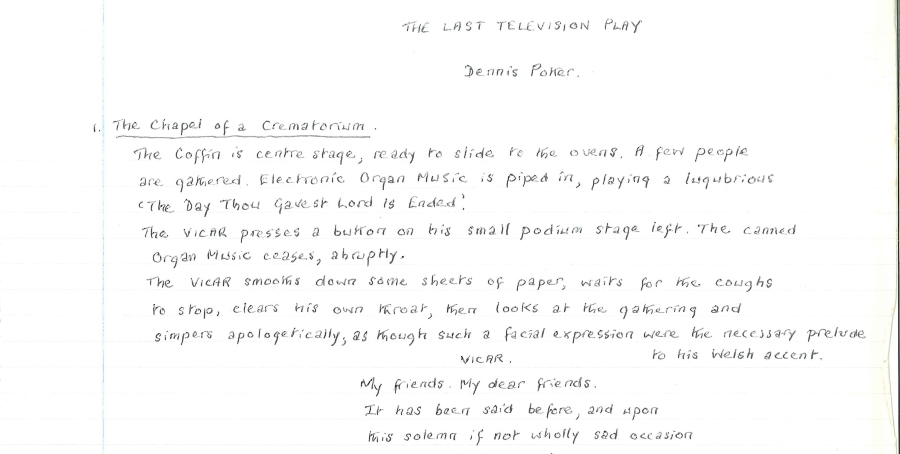 THE LAST TELEVISION PLAY
Dennis Potter.
1. The Chapel of a Crematorium.
The Coffin is centre stage, ready to slide to the ovens. A few people
are gathered. Electronic Organ Music is piped in, playing a lugubrious
'The Day Thou Gavest Lord is Ended'.
The VICAR presses a button on his small podium stage left. The canned
Organ Music ceases, abruptly.
The VICAR smooths down some sheets of paper, waits for the coughs
to stop, clears his own throat, then looks at the gathering and
simpers apologetically, as though such a facial expression were the necessary prelude
to his Welsh accent.
VICAR.
My friends. My dear friends.
It has been said before, and upon
this solemn if not wholly sad occasion